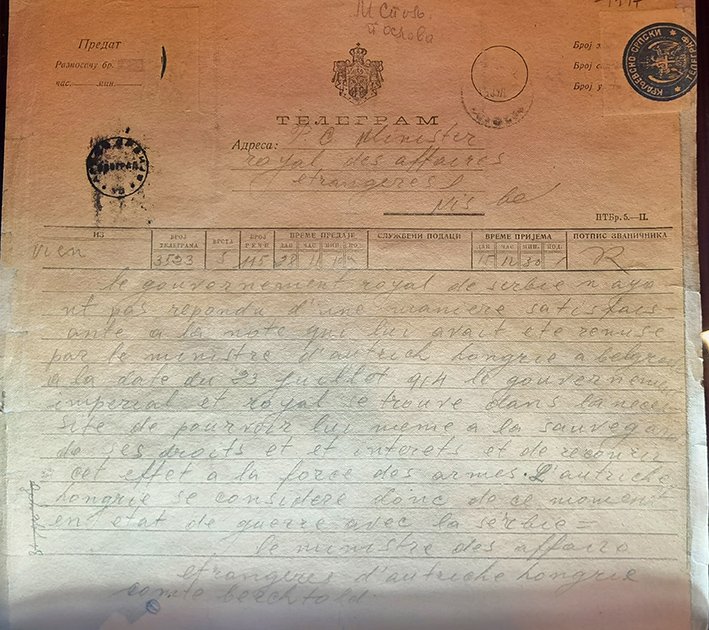 М Споль.
послова
Предат
Разносачу бр.
час. мин.
Број
Број
Број
КРАЉЕВИНО-СРПСКИ ТЕЛЕГРАФ
ТЕЛЕГРАМ
Адреса: Minister
royal des affaires
etrangeres
Nis
ПТБр. 5.—II.
ИЗ БРОЈ ТЕЛЕГРАМА ВРСТА БРОЈ РЕЧИ ВРЕМЕ ПРЕДАЈЕ СЛУЖБЕНИ ПОДАЦИ ВРЕМЕ ПРИЈЕМА ПОТПИС ЗВАНИЧНИКА
ДАН ЧАС МИН. ПОД. ДАН ЧАС МИН. ПОД.
Vien 3523 5 115 28 11 10 15 12 30
le gouvernement royal de serbie n aya
nt pas repondu d'une maniere satisfais
ante a la note qui lui avait ete remise
par le ministre d'autrich hongrie a belgrad
a la date du 23 juillet 914 le gouvernemen
imperial et royal se trouve dans la nece
site de pourvoir lui meme a la sauvegar
de ses droits et et interets et de recourir
cet effet a la force des armes. L'autriche
hongrie se considere donc de ce moment
en etat de guerre avec la serbie =
le ministre des affaire
etrangeres d'autriche hongrie
comte berchtold